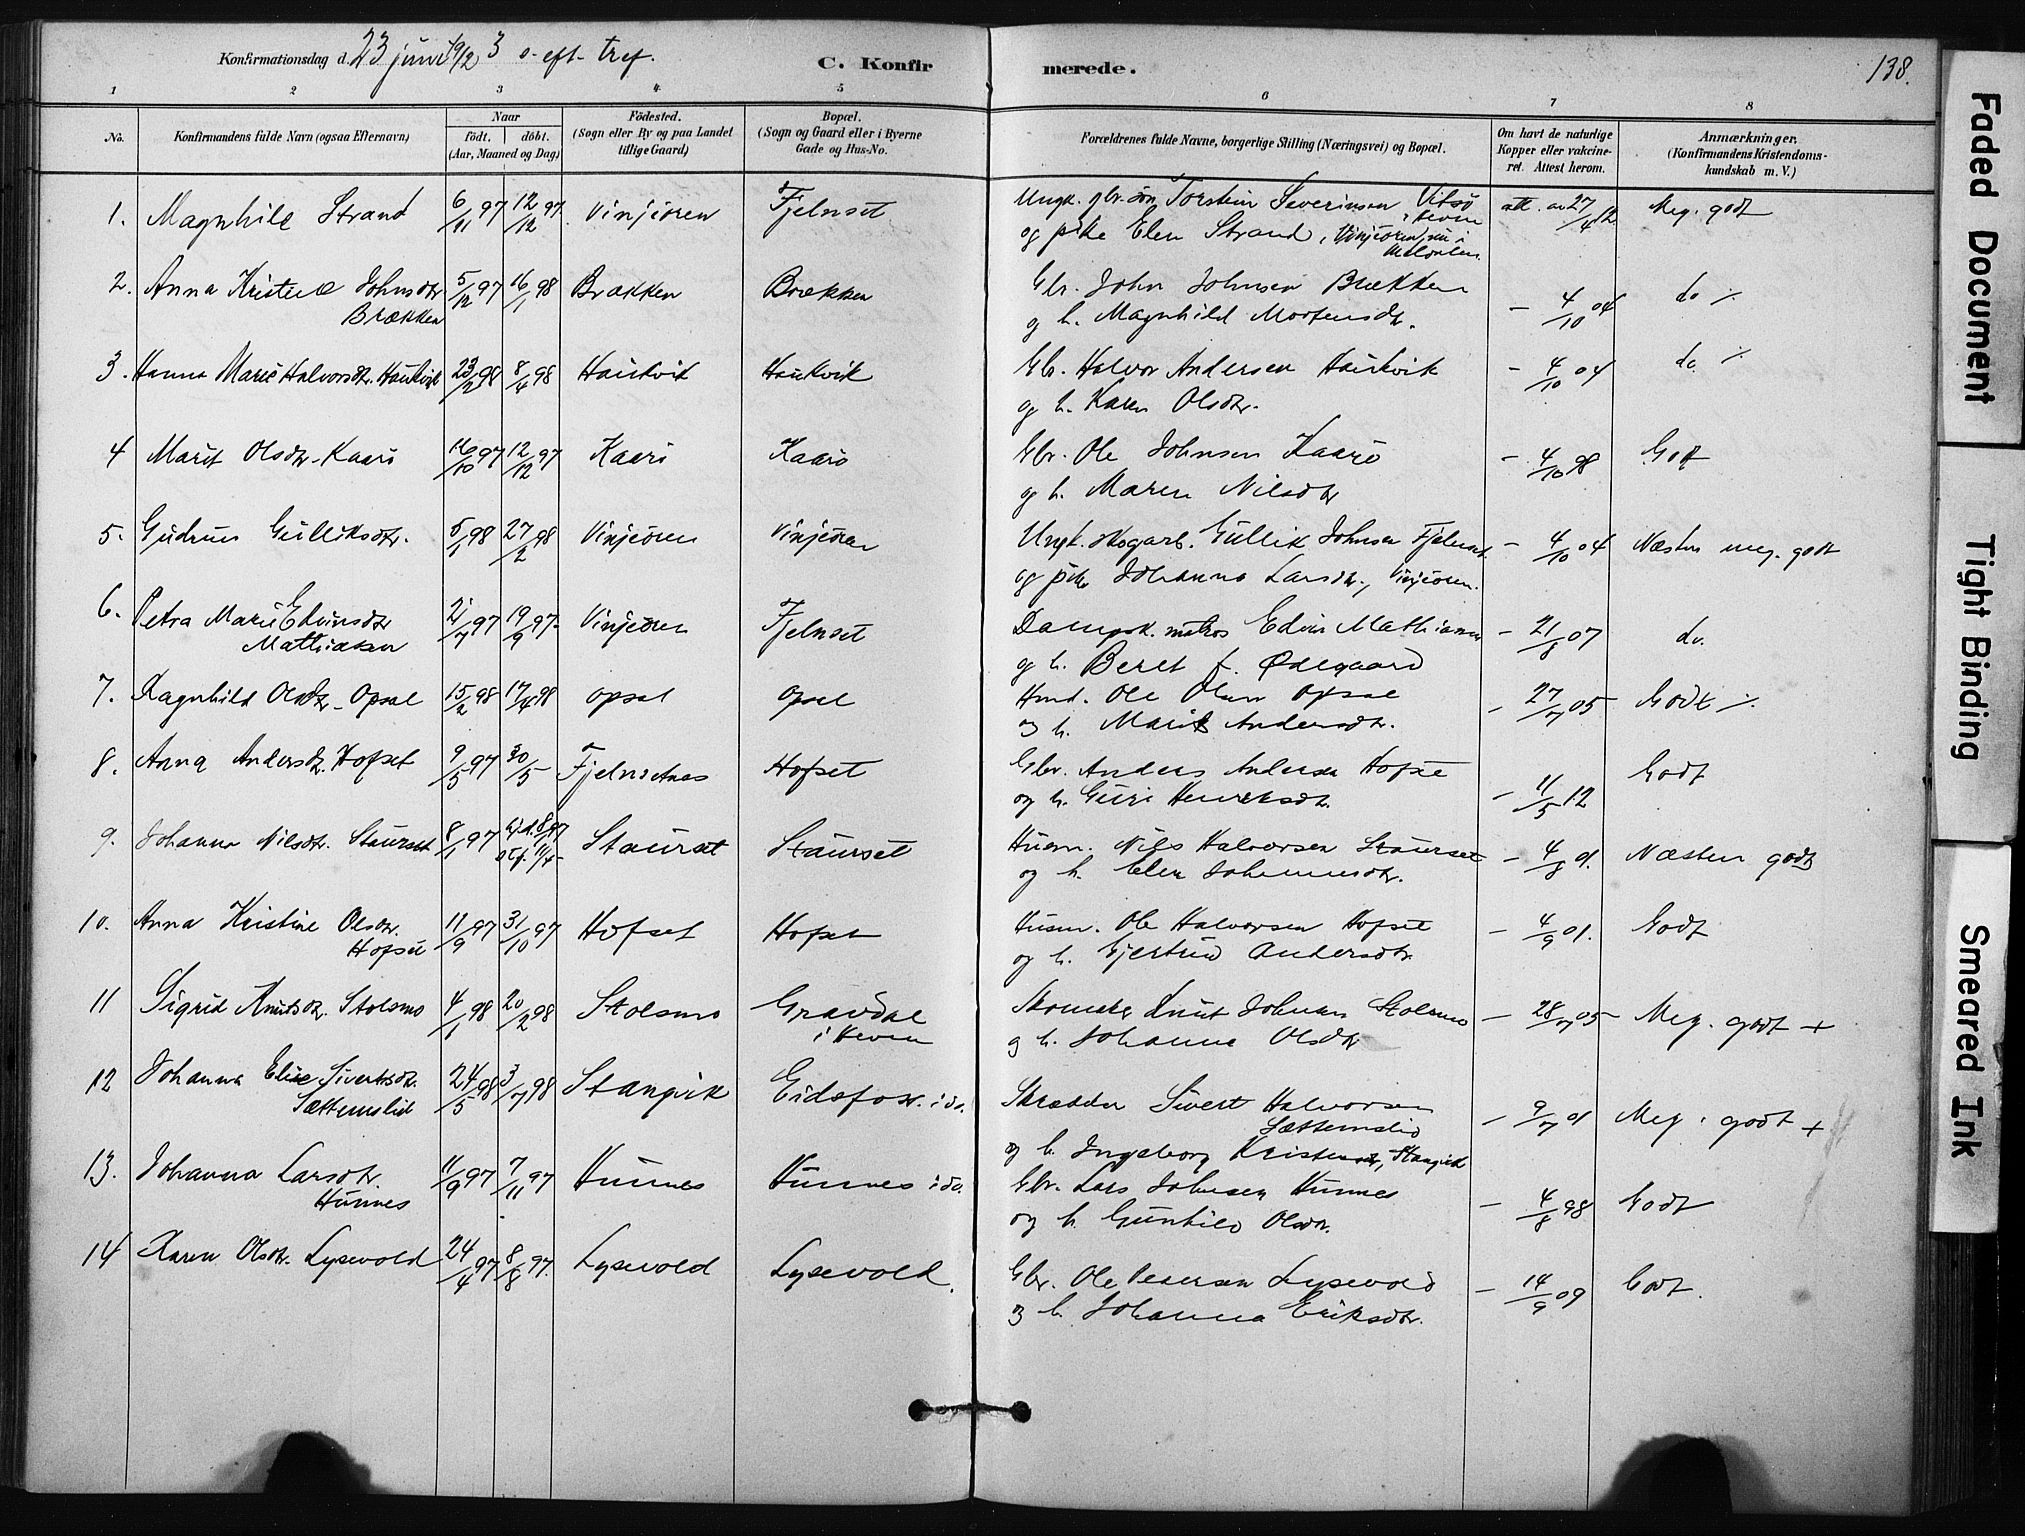 Konfirmationsdag d. 23 juni 1912 3 s. eft. tref.
C. Konfirmerede.
138.
1 2 3 4 5 6 7 8
No.
Konfirmandens fulde Navn (ogsaa Efternavn)
Naar
födt. döbt.
(Aar, Maaned og Dag)
Födested.
(Sogn eller By og paa Landet
tillige Gaard)
Bopæl.
(Sogn og Gaard eller i Byerne
Gade og Hus-No.
Forældrenes fulde Navne, borgerlige Stilling (Næringsvei) og Bopæl.
Om havt de naturlige
Kopper eller vakcine-
ret. Attest herom.
Anmærkninger.
(Konfirmandens Kristendoms-
kundskab m. V.)
1. Magnhild Strand 6/11 97 12/12 97 Vinjeören Fjelnset Ungk. gbr. sön Torstein Severinsen Vitsö att. av 27/4 12 Meg. godt
i Heven
og pike Elen Strand, Vinjeören, nu i
2. Anna Kristine Johnsdtr. 5/12 97 16/1 98 Brækken Brækken Gbr. John Johnsen Brækken - 4/10 04 do ٪
Brækken og h. Magnhild Mortensdtr.
3. Hanna Marie Halvorsdtr. Haukvik 23/2 98 8/4 98 Haukvik Haukvik Gbr. Halvor Andersen Haukvik - 4/10 04 do. ٪
og h. Karen Olsdtr.
4 Marit Olsdtr. Kaarö 16/10 97 12/12 97 Kaarö Kaarö Gbr. Ole Johnsen Kaarö - 4/10 98 Godt
og h. Maren Nilsdtr
5. Gudrun Gulliksdtr. 5/1 98 27/2 98 Vinjeören Vinjeören Ungk. skogarb. Gullik Johnsen Fjelnset - 4/10 04 Næsten meg. godt
og pike Johanna Larsdtr., Vinjeören.
6. Petra Marie Edvinsdtr 21/7 97 19/9 97 Vinjeören Fjelnset Dampsk. matros Edvin Mathiasen - 21/8 07 do.
Mathiasen og h. Beret f. Ødegaard
7. Ragnhild Olsdtr. Opsal 15/2 98 17/4 98 Opsal Opsal Hmd. Ole Olsen Opsal - 27/7 05 Godt ٪
og h. Marit Andersdtr.
8. Anna Andersdtr. Hofset 9/5 97 30/5 Fjelnsetnes Hofset Gbr. Anders Andersen Hofset - 11/5 12 Godt
og h. Guri Henriksdtr.
9. Johanna Nilsdtr. Staurset 8/1 97 Staurset Staurset Husm. Nils Halvorsen Staurset - 4/8 01. Næsten godt
og h. Elen Johannesdtr.
10. Anna Kristine Olsdtr. 11/9 97 31/10 97 Hofset Hofset Husm. Ole Halvorsen Hofset - 4/9 01. Godt
Hofset og h. Gjertrud Andersdtr.
11 Sigrid Knutsdtr. Stolsmo 4/1 98 20/2 98 Stolsmo Gravdal Skomaker Knut Johnsen Stolsmo - 28/7 05 Meg. godt +
i Heven og h. Johanne Olsdtr
12 Johanna Elise Sivertsdtr. 24/5 98 3/7 98 Stangvik Eidsfoss. i do. Skrædder Sivert Halvorsen - 9/7 01 Meg. godt +
Sættemslid Sættemslid
og h. Ingeborg Kristensdtr., Stangvik
13. Johanna Larsdtr. 11/9 97 7/11 97 Hunnes Hunnes i do. Gbr. Lars Johnsen Hunnes - 4/8 98 Godt
Hunnes og h. Gunhild Olsdtr.
14 Karen Olsdtr. Lysevold 24/4 97 8/8 97. Lysevold Lysevold. Gbr. Ole Pedersen Lysevold - 14/9 09 Godt.
og h. Johanna Eriksdtr.
Faded Document
Tight Binding
Smeared Ink